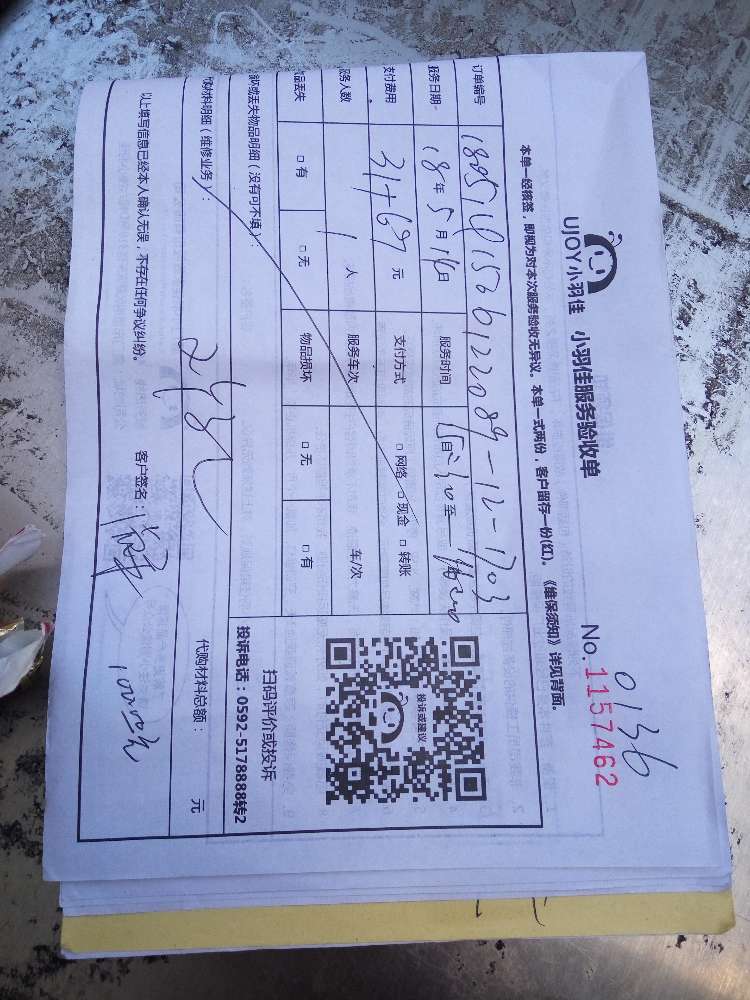 UJOY小羽佳 小羽佳服务验收单
0136
No. 1157462
本单一经核签，即视为对本次服务验收无异议。本单一式两份，客户留存一份(红)。《维保须知》详见背面。
订单编号
服务日期 18年5月 日 服务时间 自 至
支付费用 31+69元 支付方式 □网络 □现金 □转账
服务人数 1人 服务车次 车/次
物品丢失 □有 □无 物品损坏 □无 □有
投诉或建议
扫码评价或投诉
投诉电话：0592-5178888转2
损坏或丢失物品明细（没有可不填）：
代购材料明细（维修业务）：
代购材料总额： 元
以上填写信息已经本人确认无误，不存在任何争议纠纷。 客户签名：